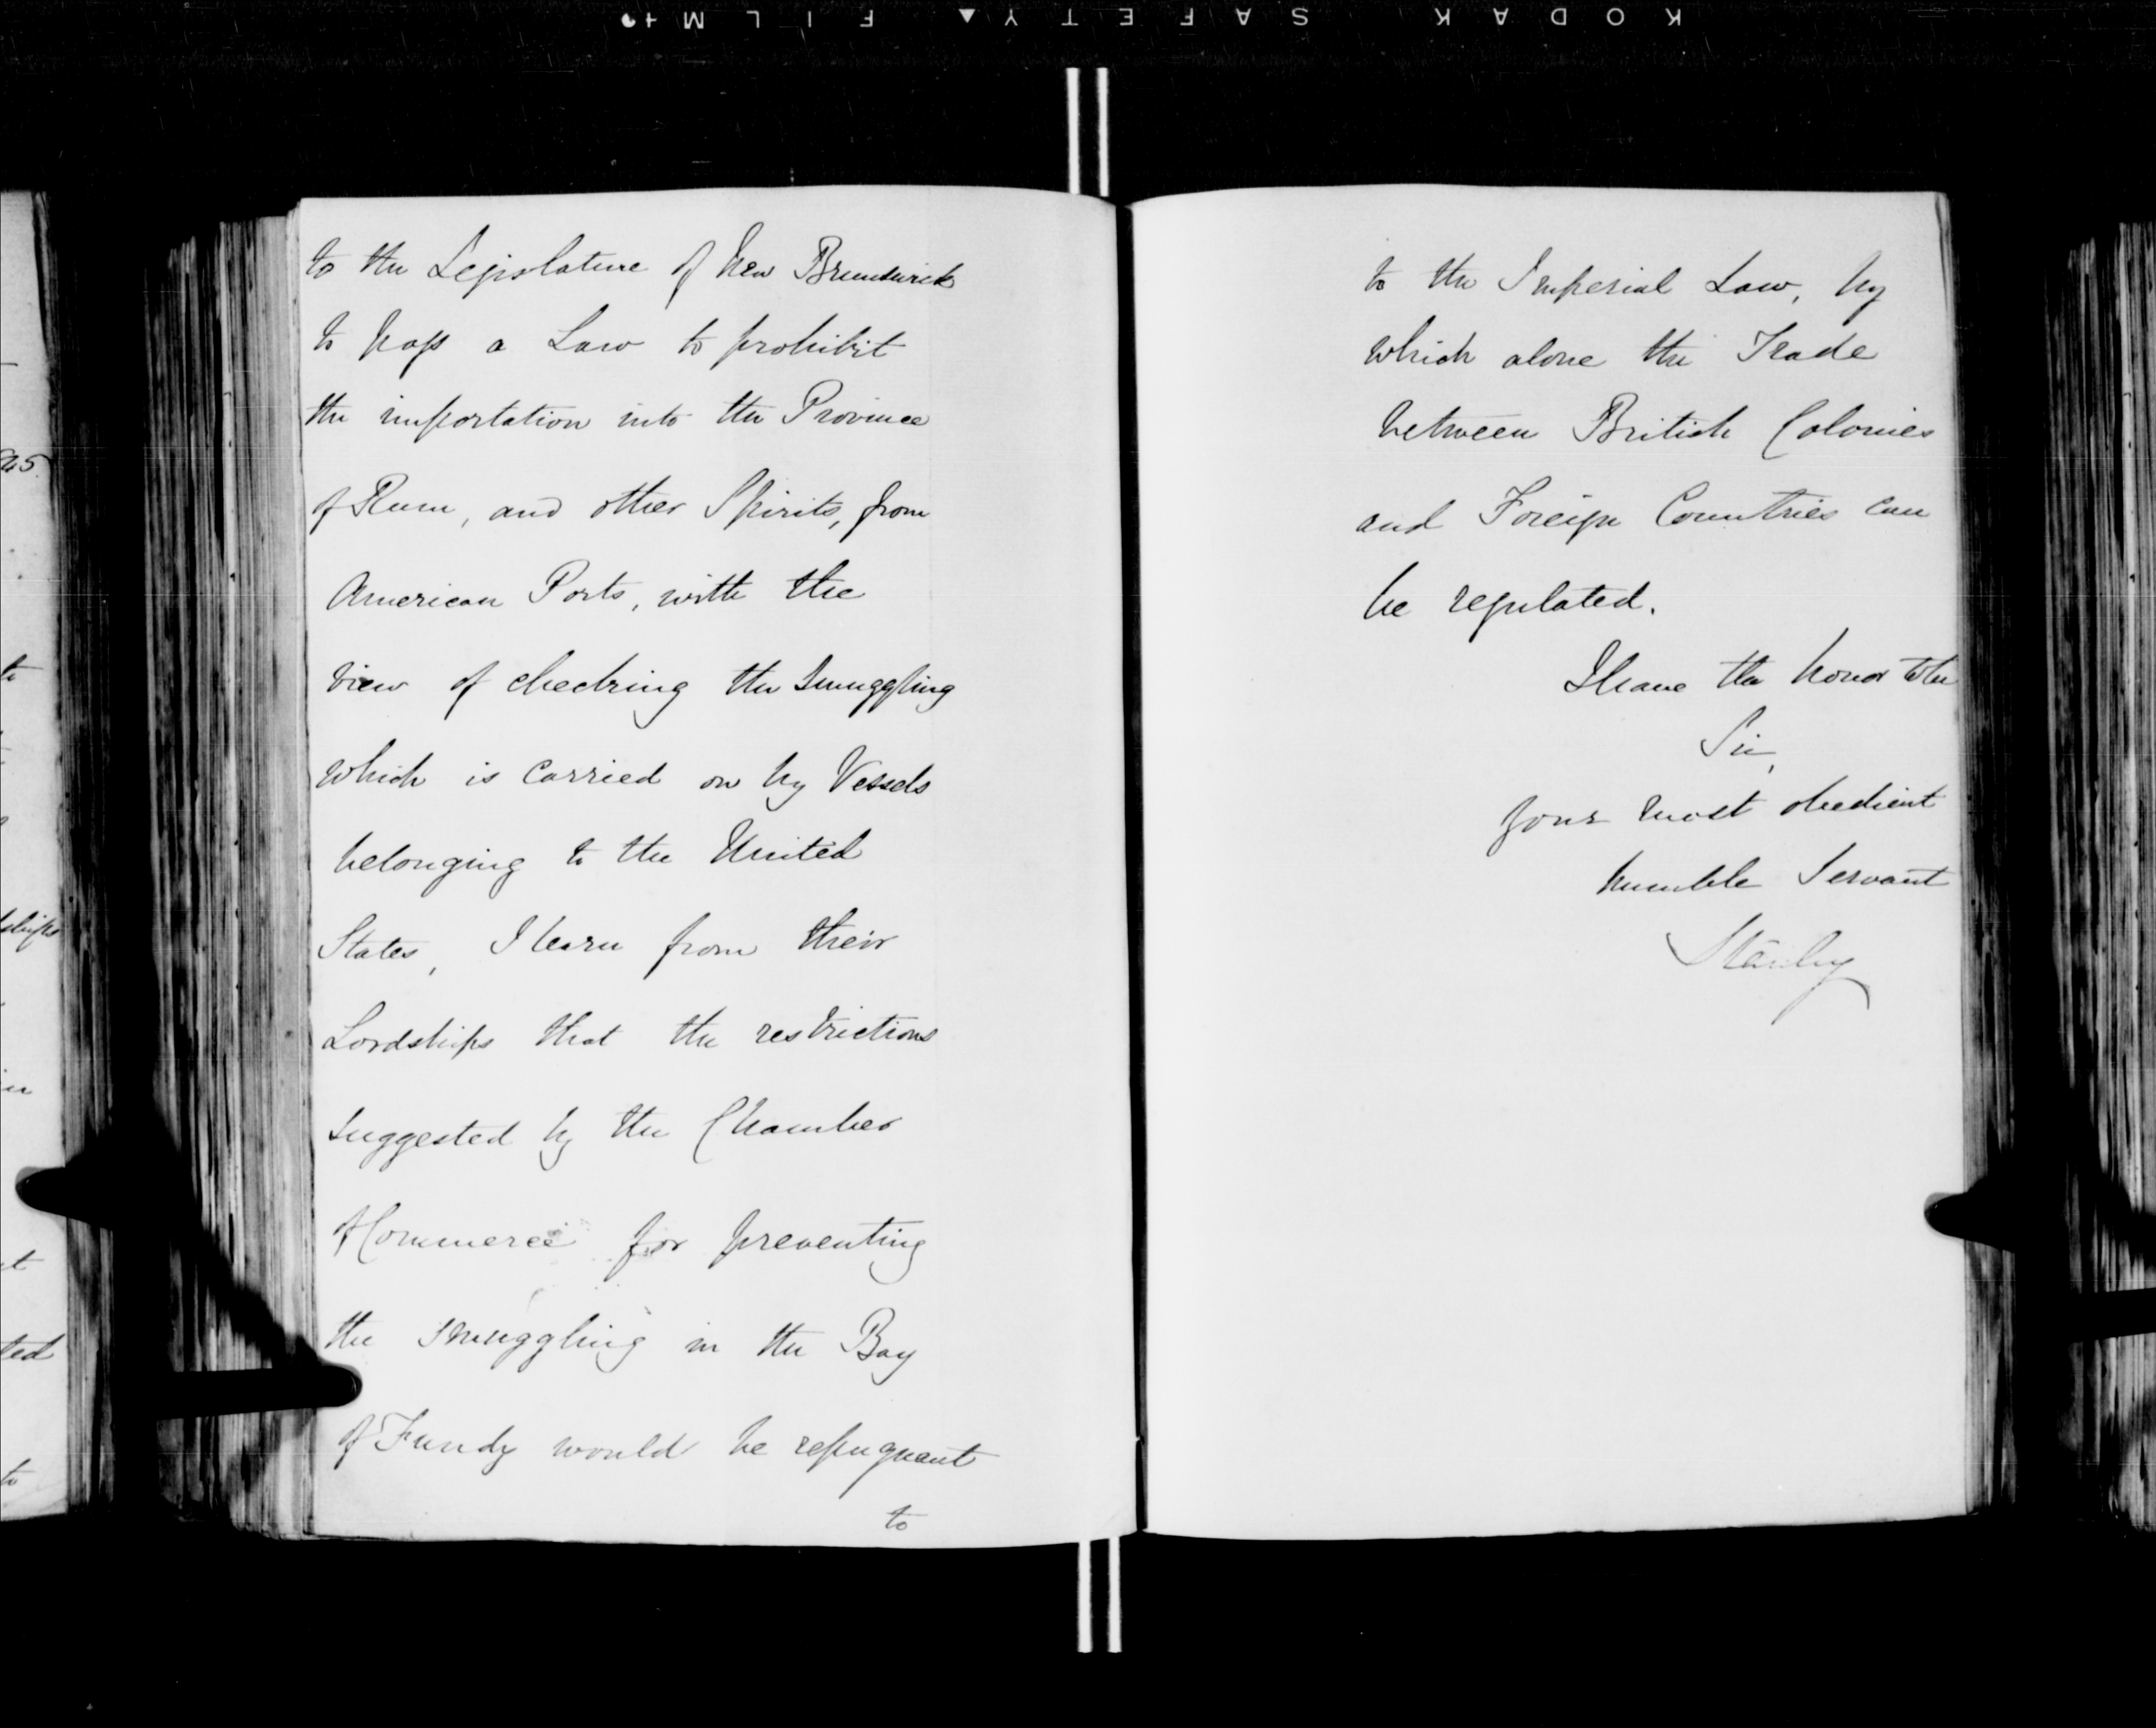 KODAK SAFETY FILM
to the Legislature of New Brunswick
to pass a Law to prohibit
the importation into the Province
of Rum, and other Spirits, from
American Ports, with the
view of checking the Smuggling
which is carried on by Vessels
belonging to the United
States, I learn from their
Lordships that the restrictions
suggested by the Chamber
of Commerce for preventing
the smuggling in the Bay
of Fundy would be repugnant
to
to the Imperial Law, by
which alone the Trade
between British Colonies
and Foreign Countries can
be regulated.
I have the honor to be
Sir,
your most obedient
humble Servant
Stanley